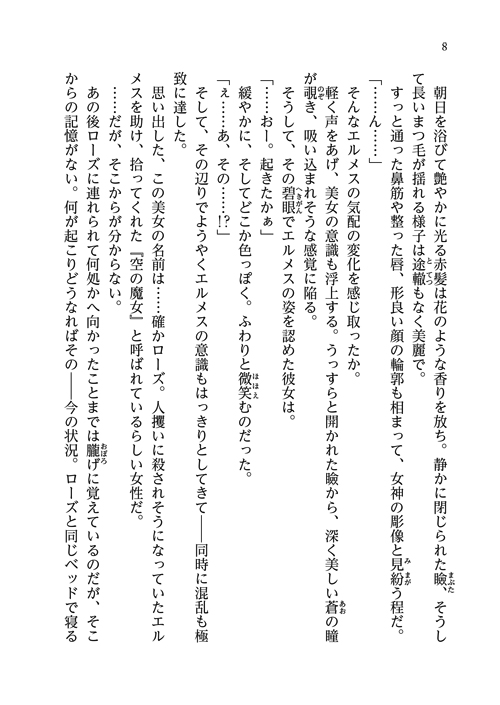 8
朝日を浴びて艶やかに光る赤髪は花のような香りを放ち。静かに閉じられた瞼、そうし
て長いまつ毛が揺れる様子は途轍もなく美麗で。
すっと通った鼻筋や整った唇、形良い顔の輪郭も相まって、女神の彫像と見紛う程だ。
「……ん……」
そんなエルメスの気配の変化を感じ取ったか。
軽く声をあげ、美女の意識も浮上する。うっすらと開かれた瞼から、深く美しい蒼の瞳
が覗き、吸い込まれそうな感覚に陥る。
そうして、その碧眼でエルメスの姿を認めた彼女は。
「……おー。起きたかぁ」
緩やかに、そしてどこか色っぽく。ふわりと微笑むのだった。
「ぇ……あ、その……!?」
そして、その辺りでようやくエルメスの意識もはっきりとしてきて――同時に混乱も極
致に達した。
思い出した、この美女の名前は……確かローズ。人攫いに殺されそうになっていたエル
メスを助け、拾ってくれた『空の魔女』と呼ばれているらしい女性だ。
……だが、そこからが分からない。
あの後ローズに連れられて何処かへ向かったことまでは朧げに覚えているのだが、そこ
からの記憶がない。何が起こりどうなればその――今の状況。ローズと同じベッドで寝る